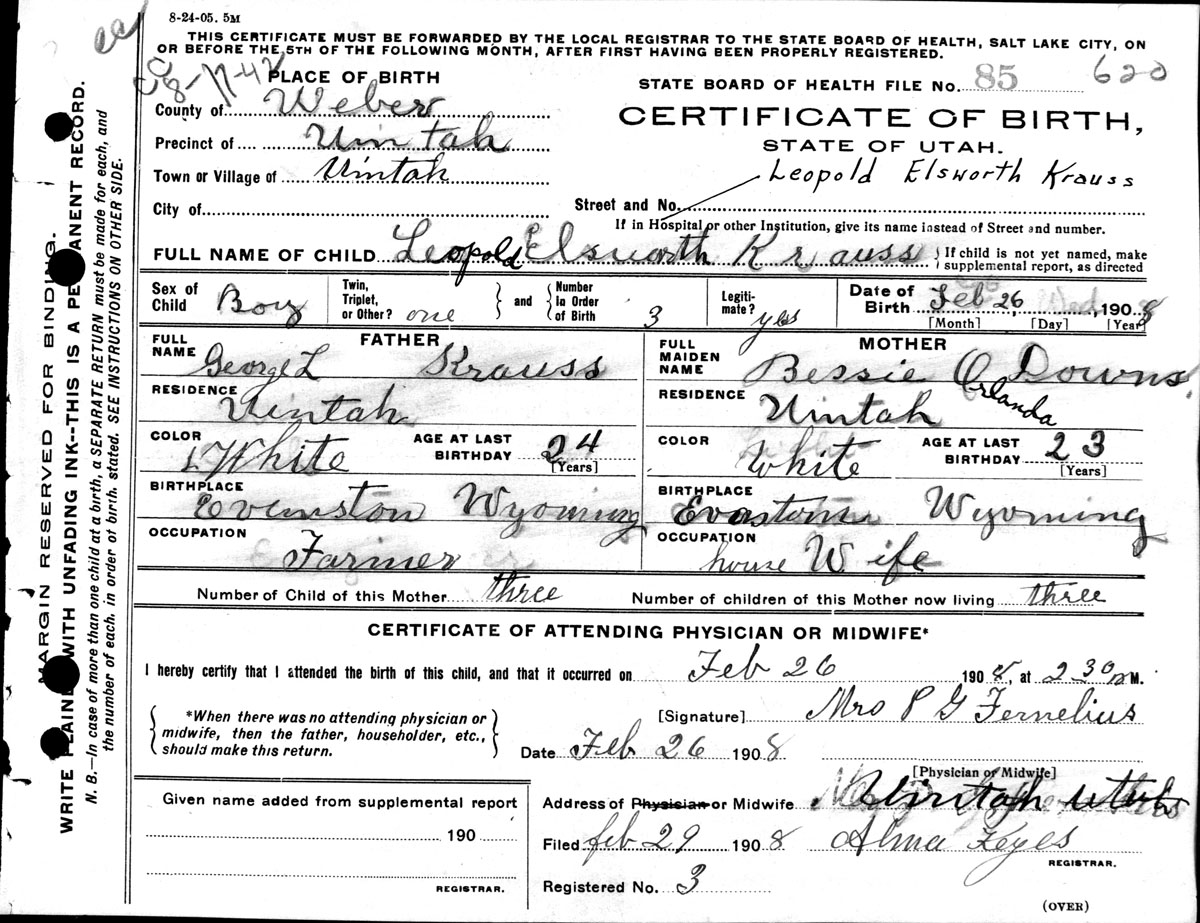 8-24-05. 5M
THIS CERTIFICATE MUST BE FORWARDED BY THE LOCAL REGISTRAR TO THE STATE BOARD OF HEALTH, SALT LAKE CITY, ON
OR BEFORE THE 5TH OF THE FOLLOWING MONTH, AFTER FIRST HAVING BEEN PROPERLY REGISTERED.
8-17-42
PLACE OF BIRTH
STATE BOARD OF HEALTH FILE No. 85 620
County of Weber
CERTIFICATE OF BIRTH,
Precinct of Uintah
STATE OF UTAH.
Town or Village of Uintah
Leopold Elsworth Krauss
City of
Street and No.
If in Hospital or other Institution, give its name instead of Street and number.
FULL NAME OF CHILD Leopold Elsworth Krauss
If child is not yet named, make
supplemental report, as directed
Sex of Child Boy
Twin, Triplet, or Other? one and Number In Order of Birth 3
Legiti-mate? yes
Date of Birth Feb 26, Wed, 1908
[Month] [Day] [Year]
FATHER
FULL NAME George L Krauss
RESIDENCE Uintah
COLOR White
AGE AT LAST BIRTHDAY 24
[Years]
BIRTHPLACE Evenston Wyoming
OCCUPATION Farmer
MOTHER
FULL MAIDEN NAME Bessie O Downs
Orlanda
RESIDENCE Uintah
COLOR White
AGE AT LAST BIRTHDAY 23
[Years]
BIRTHPLACE Wyoming
OCCUPATION house Wife
Number of Child of this Mother three Number of children of this Mother now living three
CERTIFICATE OF ATTENDING PHYSICIAN OR MIDWIFE*
I hereby certify that I attended the birth of this child, and that it occurred on Feb 26 1908, at 2 30 M.
*When there was no attending physician or
midwife, then the father, householder, etc.,
should make this return.
[Signature] Mrs P G Fernelius
Date Feb 26 1908
[Physician or Midwife]
Address of Physician or Midwife Uintah Utah
Given name added from supplemental report
190
REGISTRAR.
Filed feb 29 1908 Alma Keyes
REGISTRAR.
Registered No. 3
(OVER)
MARGIN RESERVED FOR BINDING.
WRITE PLAINLY WITH UNFADING INK--THIS IS A PERMANENT RECORD.
N. B.—In case of more than one child at a birth, a SEPARATE RETURN must be made for each, and
the number of each, in order of birth, stated. SEE INSTRUCTIONS ON OTHER SIDE.